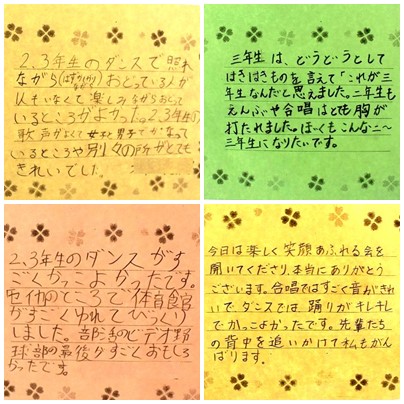 2、3年生のダンスで照れ
ながら(はずかしがり
ながら)おどっている人が
1人もいなくて楽しみながらおどって
いるところがよかった。2、3年生の
歌声がよくて女子と男子でかさなって
いるところや別々の所がとても
きれいでした。
三年生は、どうどうとして
はきはきものを言えて「これが三
年生なんだと思えました。二年生も
えんぶや合唱はとても胸が
打たれました。ぼくもこんな二〜
三年生になりたいです。
2、3年生のダンスがす
ごくかっこよかったです。
セイカのところで体育館
がすごくゆれてびっくり
しました。部活のビデオ野
球部の最後がすごくおもしろ
かったです
今日は楽しく笑顔あふれる会を
開いてくださり、本当にありがとう
ございます。合唱ではすごく音がきれ
いで、ダンスでは踊りがキレキレ
でかっこよかったです。先輩たち
の背中を追いかけて私もがん
ばります。